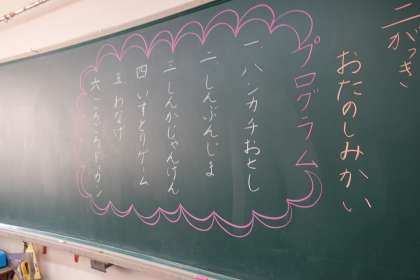 二がっき
おたのしみかい
プログラム
一 ハンカチおとし
二 しんぶんじま
三 しんかじゃんけん
四 いすとりゲーム
五 わなげ
六 ごろごろドカン